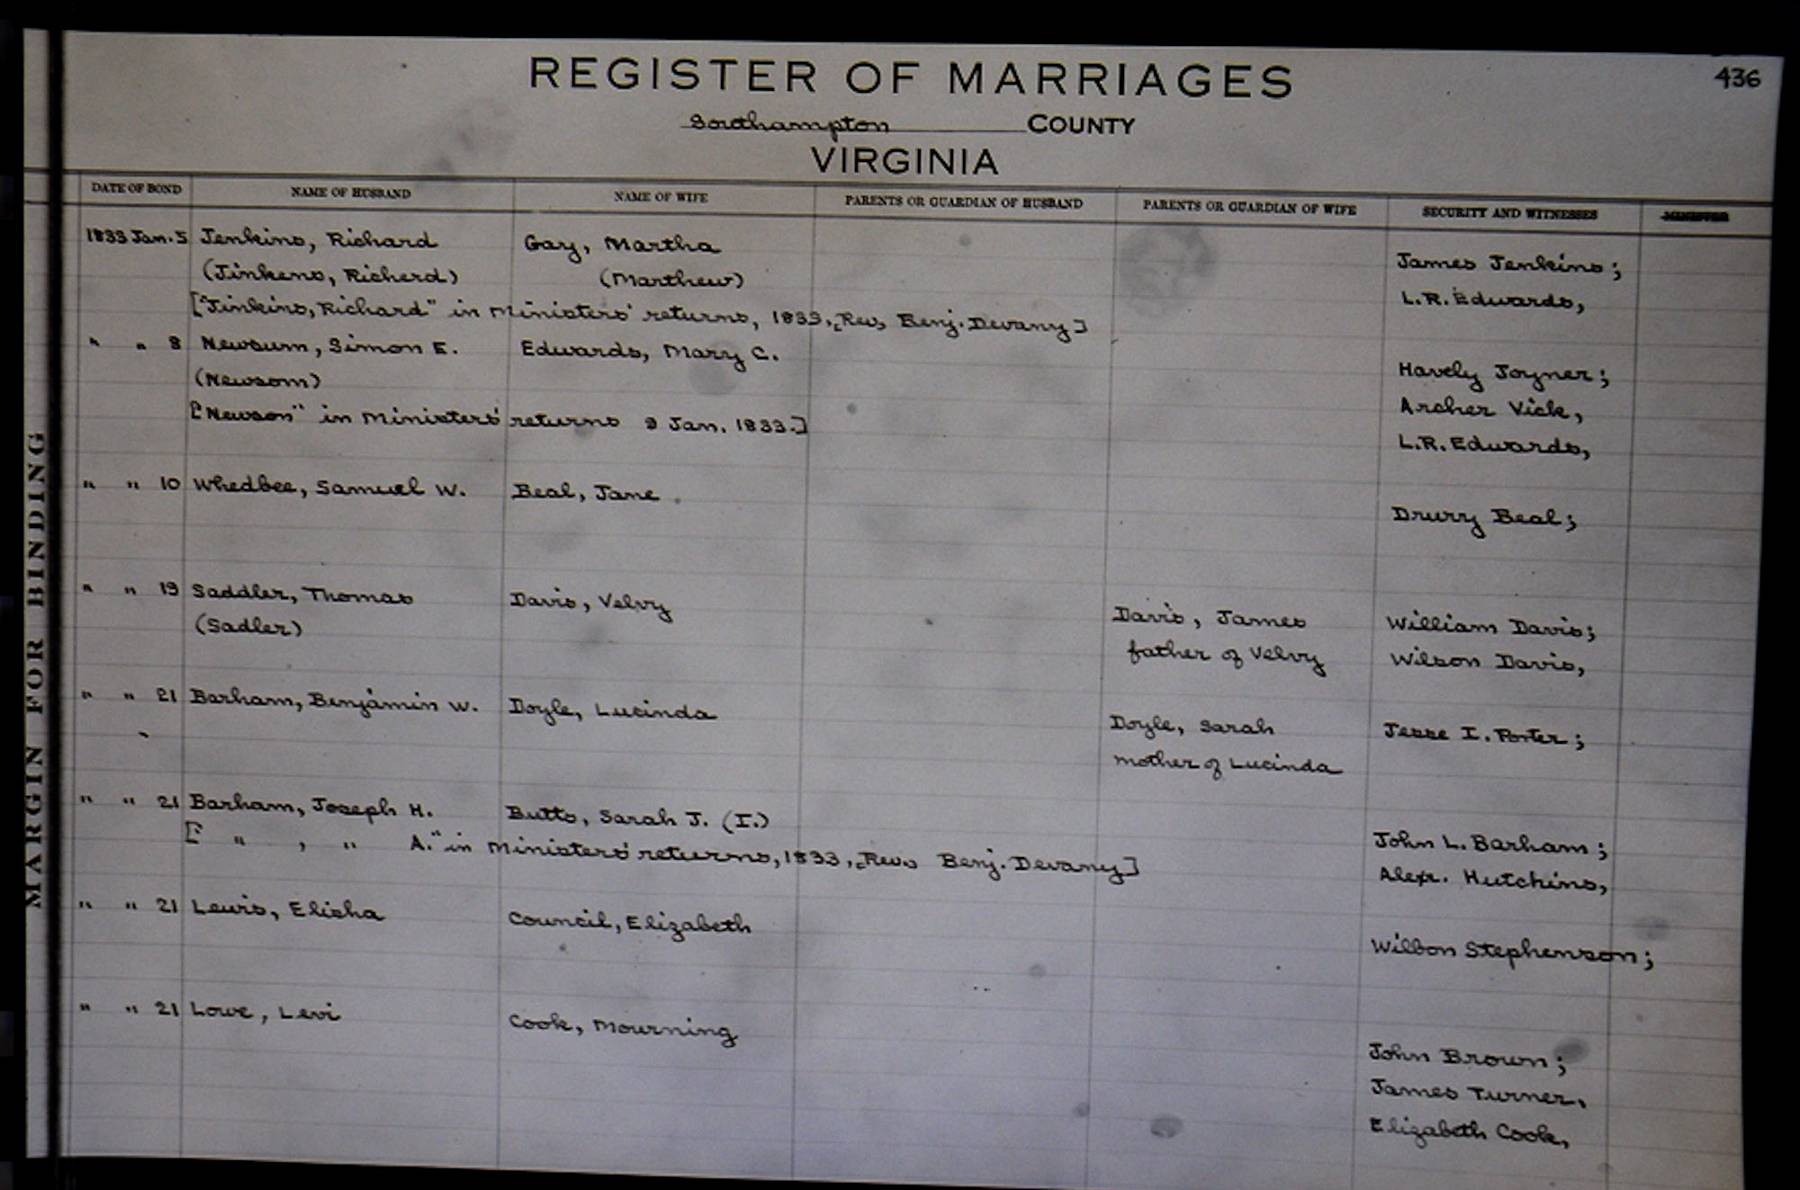 436
REGISTER OF MARRIAGES
Southampton COUNTY
VIRGINIA
DATE OF BOND NAME OF HUSBAND NAME OF WIFE PARENTS OR GUARDIAN OF HUSBAND PARENTS OR GUARDIAN OF WIFE SECURITY AND WITNESSES MINISTER
1833 Jan. 5 Jenkins, Richard Gay, Martha James Jenkins;
(Jinkens, Richerd) (Marthew) L.R. Edwards,
["Jinkins, Richard" in Ministers' returns, 1833, [Rev. Benj. Devany]
" " 8 Newsum, Simon E. Edwards, Mary C. Havely Joyner;
(Newsom) Archer Vick,
["Newson" in Ministers' returns 9 Jan. 1833.] L.R. Edwards,
" " 10 Whedbee, Samuel W. Beal, Jane Drury Beal;
" " 19 Saddler, Thomas Davis, Velvy Davis, James William Davis;
(Sadler) father of Velvy Wilson Davis,
" " 21 Barham, Benjamin W. Doyle, Lucinda Doyle, Sarah Jesse I. Porter;
mother of Lucinda
" " 21 Barham, Joseph H. Butts, Sarah J. (I.) John L. Barham;
[ " , " A." in Ministers' returns, 1833, [Rev. Benj. Devany] Alex. Hutchins,
" " 21 Lewis, Elisha Council, Elizabeth Wilson Stephenson;
" " 21 Lowe, Levi Cook, Mourning John Brown;
James Turner,
Elizabeth Cook,
MARGIN FOR BINDING